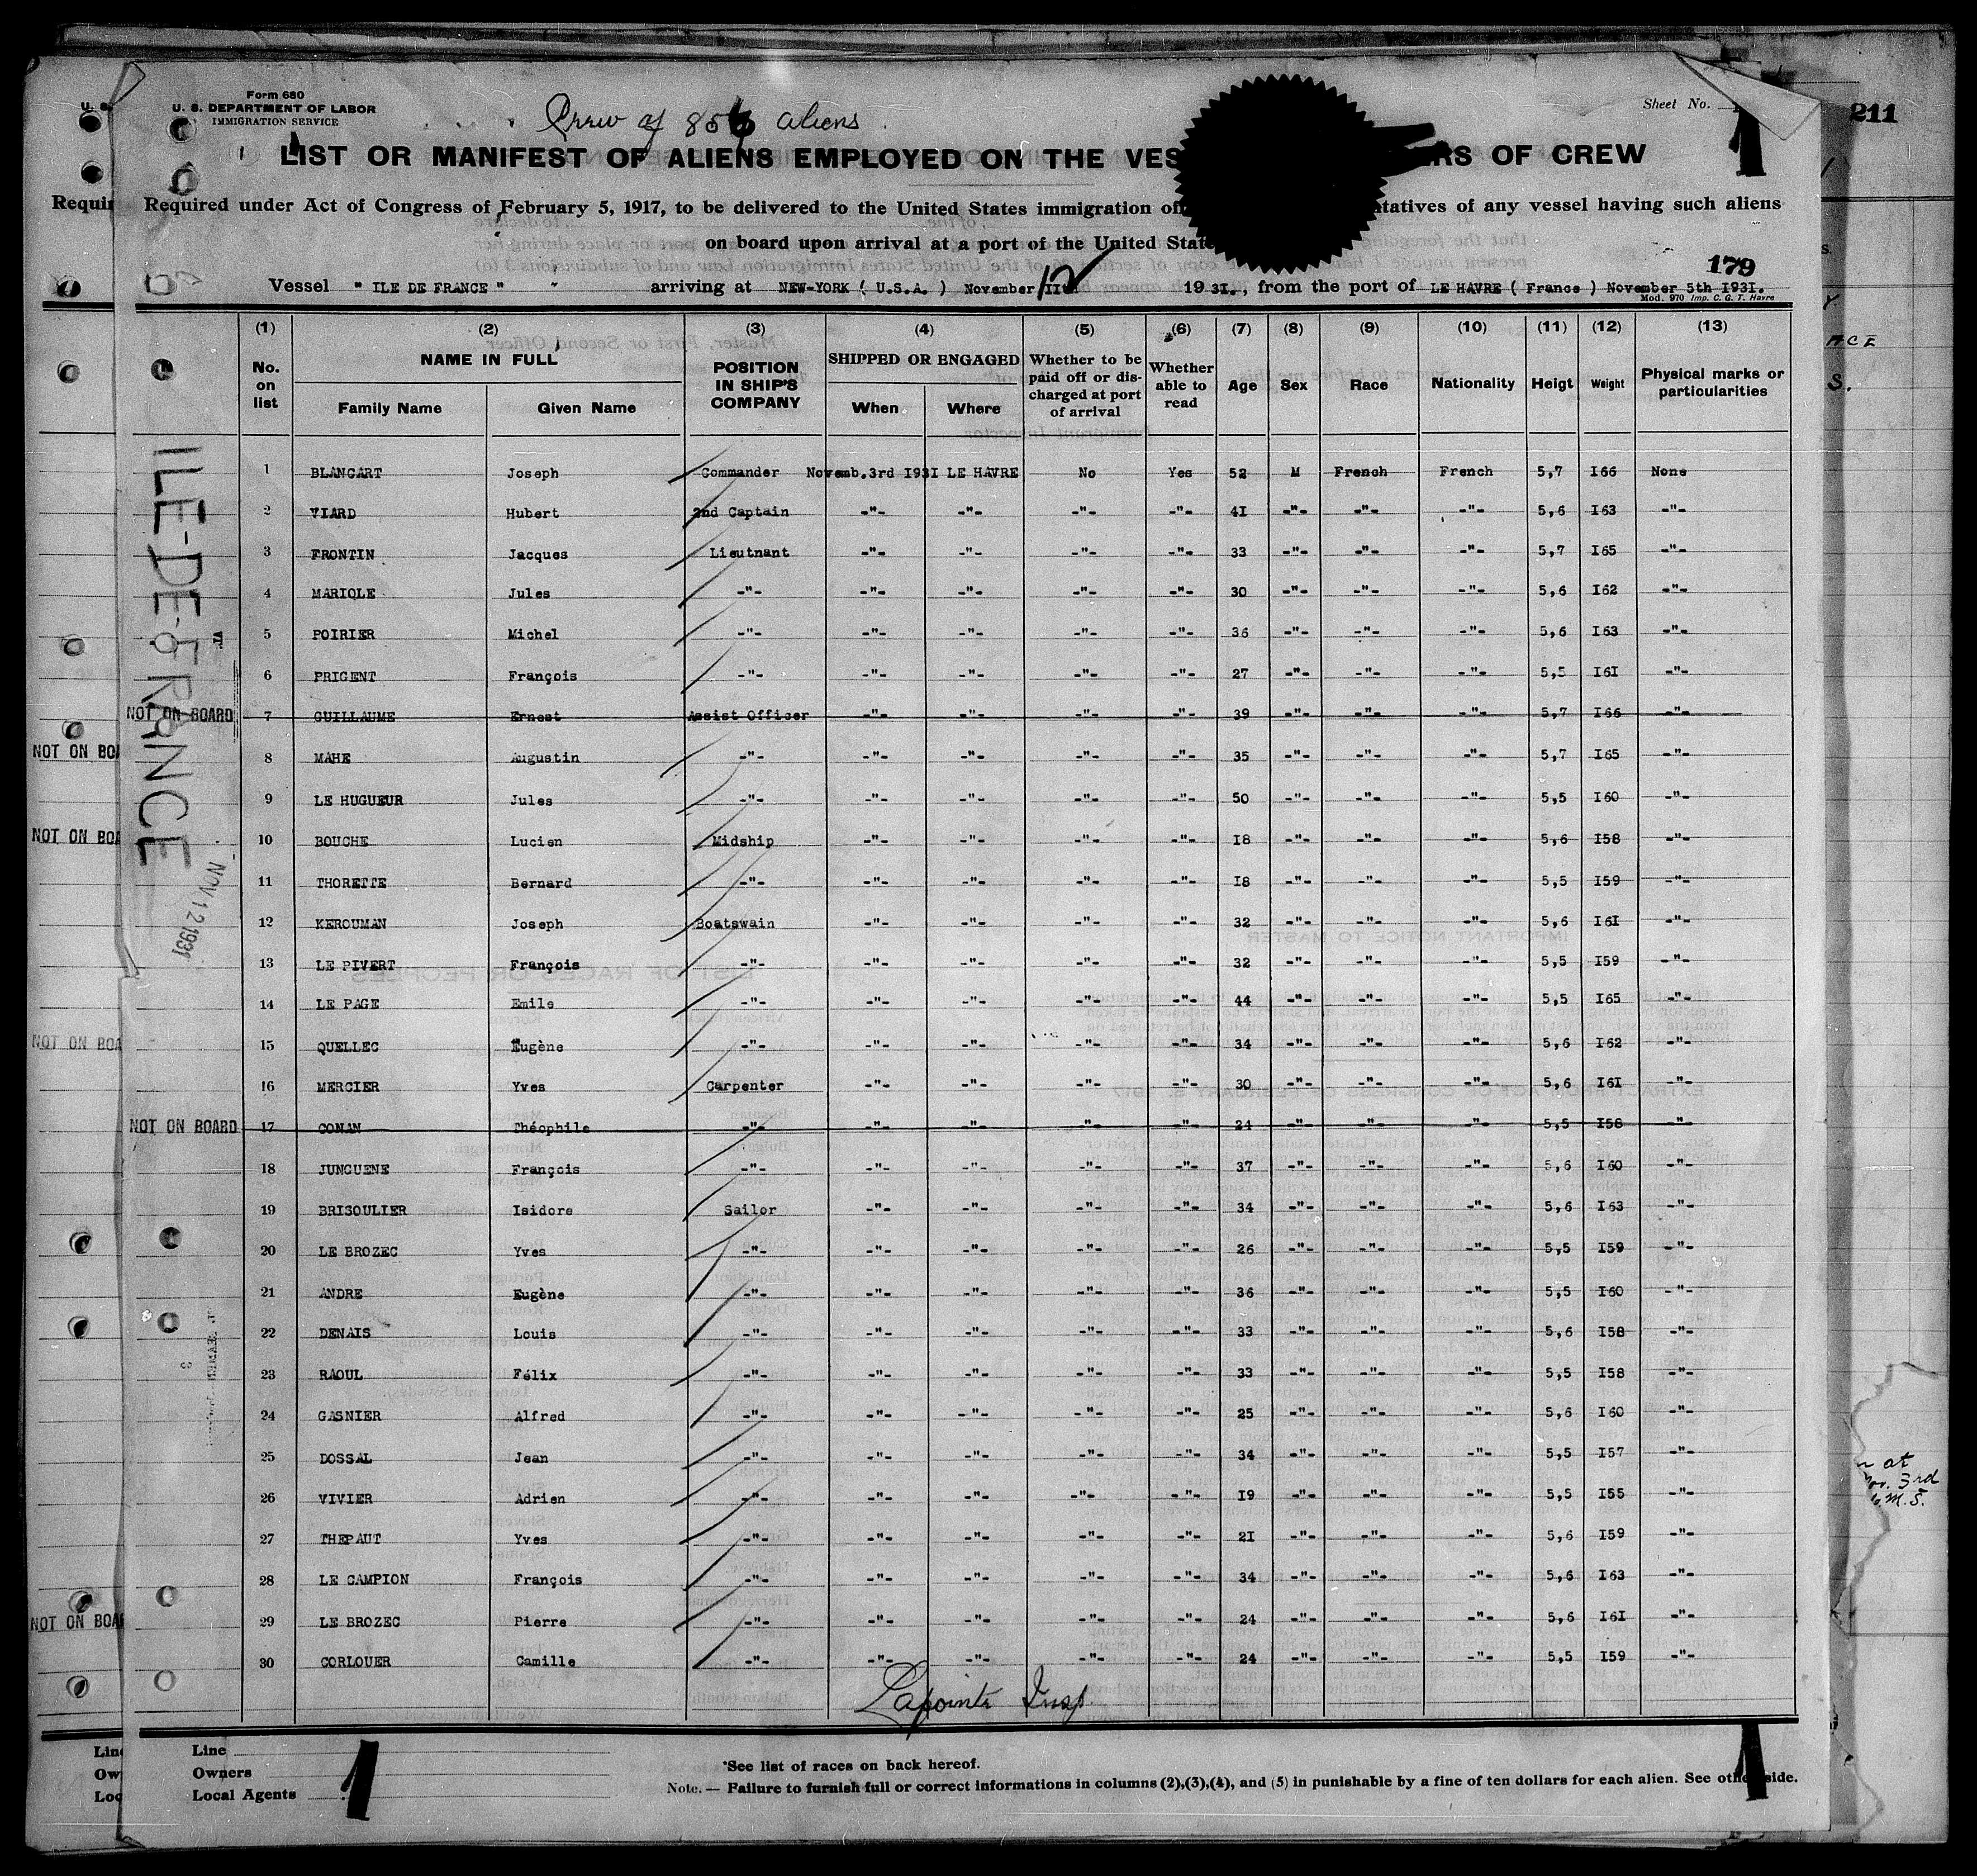 Form 680
U. S. DEPARTMENT OF LABOR
IMMIGRATION SERVICE
Crew of aliens
Sheet No. 1
211
LIST OR MANIFEST OF ALIENS EMPLOYED ON THE VES RS OF CREW
Required under Act of Congress of February 5, 1917, to be delivered to the United States immigration of tatives of any vessel having such aliens
on board upon arrival at a port of the United Stat
179
Vessel " ILE DE FRANCE " arriving at NEW-YORK ( U.S.A. ) November 12 1931., from the port of LE HAVRE ( France ) November 5th 1931.
Mod. 970 Imp. C. G. T. Havre
(1) (2) (3) (4) (5) (6) (7) (8) (9) (10) (11) (12) (13)
No. on list NAME IN FULL Family Name Given Name POSITION IN SHIP'S COMPANY SHIPPED OR ENGAGED When Where Whether to be paid off or discharged at port of arrival Whether able to read Age Sex Race Nationality Heigt Weight Physical marks or particularities
1 BLANCART Joseph Commander Novemb.3rd I93I LE HAVRE No Yes 52 M French French 5,7 I66 None
2 VIARD Hubert 2nd Captain -"- -"- -"- -"- 4I -"- -"- -"- 5,6 I63 -"-
3 FRONTIN Jacques Lieutnant -"- -"- -"- -"- 33 -"- -"- -"- 5,7 I65 -"-
4 MARIOLE Jules -"- -"- -"- -"- -"- 30 -"- -"- -"- 5,6 I62 -"-
5 POIRIER Michel -"- -"- -"- -"- -"- 36 -"- -"- -"- 5,6 I63 -"-
6 PRIGENT François -"- -"- -"- -"- -"- 27 -"- -"- -"- 5,5 I6I -"-
NOT ON BOARD 7 GUILLAUME Ernest Assist Officer -"- -"- -"- -"- 39 -"- -"- -"- 5,7 I66 -"-
8 MAHE Augustin -"- -"- -"- -"- -"- 35 -"- -"- -"- 5,7 I65 -"-
9 LE HUGUEUR Jules -"- -"- -"- -"- -"- 50 -"- -"- -"- 5,5 I60 -"-
10 BOUCHE Lucien Midship -"- -"- -"- -"- I8 -"- -"- -"- 5,6 I58 -"-
11 THORETTE Bernard -"- -"- -"- -"- -"- I8 -"- -"- -"- 5,5 I59 -"-
12 KEROUMAN Joseph Boatswain -"- -"- -"- -"- 32 -"- -"- -"- 5,6 I6I -"-
13 LE PIVERT François -"- -"- -"- -"- -"- 32 -"- -"- -"- 5,5 I59 -"-
14 LE PAGE Emile -"- -"- -"- -"- -"- 44 -"- -"- -"- 5,5 I65 -"-
15 QUELLEC Eugène -"- -"- -"- -"- -"- 34 -"- -"- -"- 5,6 I62 -"-
16 MERCIER Yves Carpenter -"- -"- -"- -"- 30 -"- -"- -"- 5,6 I6I -"-
NOT ON BOARD 17 CONAN Théophile -"- -"- -"- -"- -"- 24 -"- -"- -"- 5,5 I58 -"-
18 JUNGUENE François -"- -"- -"- -"- -"- 37 -"- -"- -"- 5,6 I60 -"-
19 BRISOULIER Isidore Sailor -"- -"- -"- -"- 34 -"- -"- -"- 5,6 I63 -"-
20 LE BROZEC Yves -"- -"- -"- -"- 26 -"- -"- -"- 5,5 I59 -"-
21 ANDRE Eugène -"- -"- -"- -"- -"- 36 -"- -"- -"- 5,5 I60 -"-
22 DENAIS Louis -"- -"- -"- -"- -"- 33 -"- -"- -"- 5,6 I58 -"-
23 RAOUL Félix -"- -"- -"- -"- -"- 33 -"- -"- -"- 5,5 I58 -"-
24 GASNIER Alfred -"- -"- -"- -"- -"- 25 -"- -"- -"- 5,6 I60 -"-
25 DOSSAL Jean -"- -"- -"- -"- -"- 34 -"- -"- -"- 5,5 I57 -"-
26 VIVIER Adrien -"- -"- -"- -"- -"- I9 -"- -"- -"- 5,5 I55 -"-
27 THEPAUT Yves -"- -"- -"- -"- -"- 2I -"- -"- -"- 5,6 I59 -"-
28 LE CAMPION François -"- -"- -"- -"- -"- 34 -"- -"- -"- 5,6 I63 -"-
29 LE BROZEC Pierre -"- -"- -"- -"- -"- 24 -"- -"- -"- 5,6 I6I -"-
30 CORLOUER Camille -"- -"- -"- -"- -"- 24 -"- -"- -"- 5,5 I59 -"-
Lapointe Insp.
ILE-DE-FRANCE
NOV 12 1931
Line
Owners
Local Agents
1
*See list of races on back hereof.
Note. — Failure to furnish full or correct informations in columns (2),(3),(4), and (5) in punishable by a fine of ten dollars for each alien. See other side.
1
U. S.
Requir
NOT ON BOA
NOT ON BOA
NOT ON BOA
NOT ON BOA
Line
Ow
Loc
ACE
S.
at
Nov. 3rd
M. S.